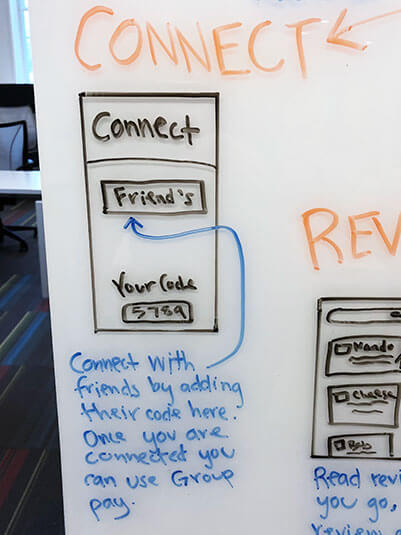 CONNECT
Connect
Friend's
Your Code
5789
Connect with
friends by adding
their code here.
Once you are
connected you
can use Group
pay.
REV
Nando
Cheese
Bob
Read revi
you go,
review a